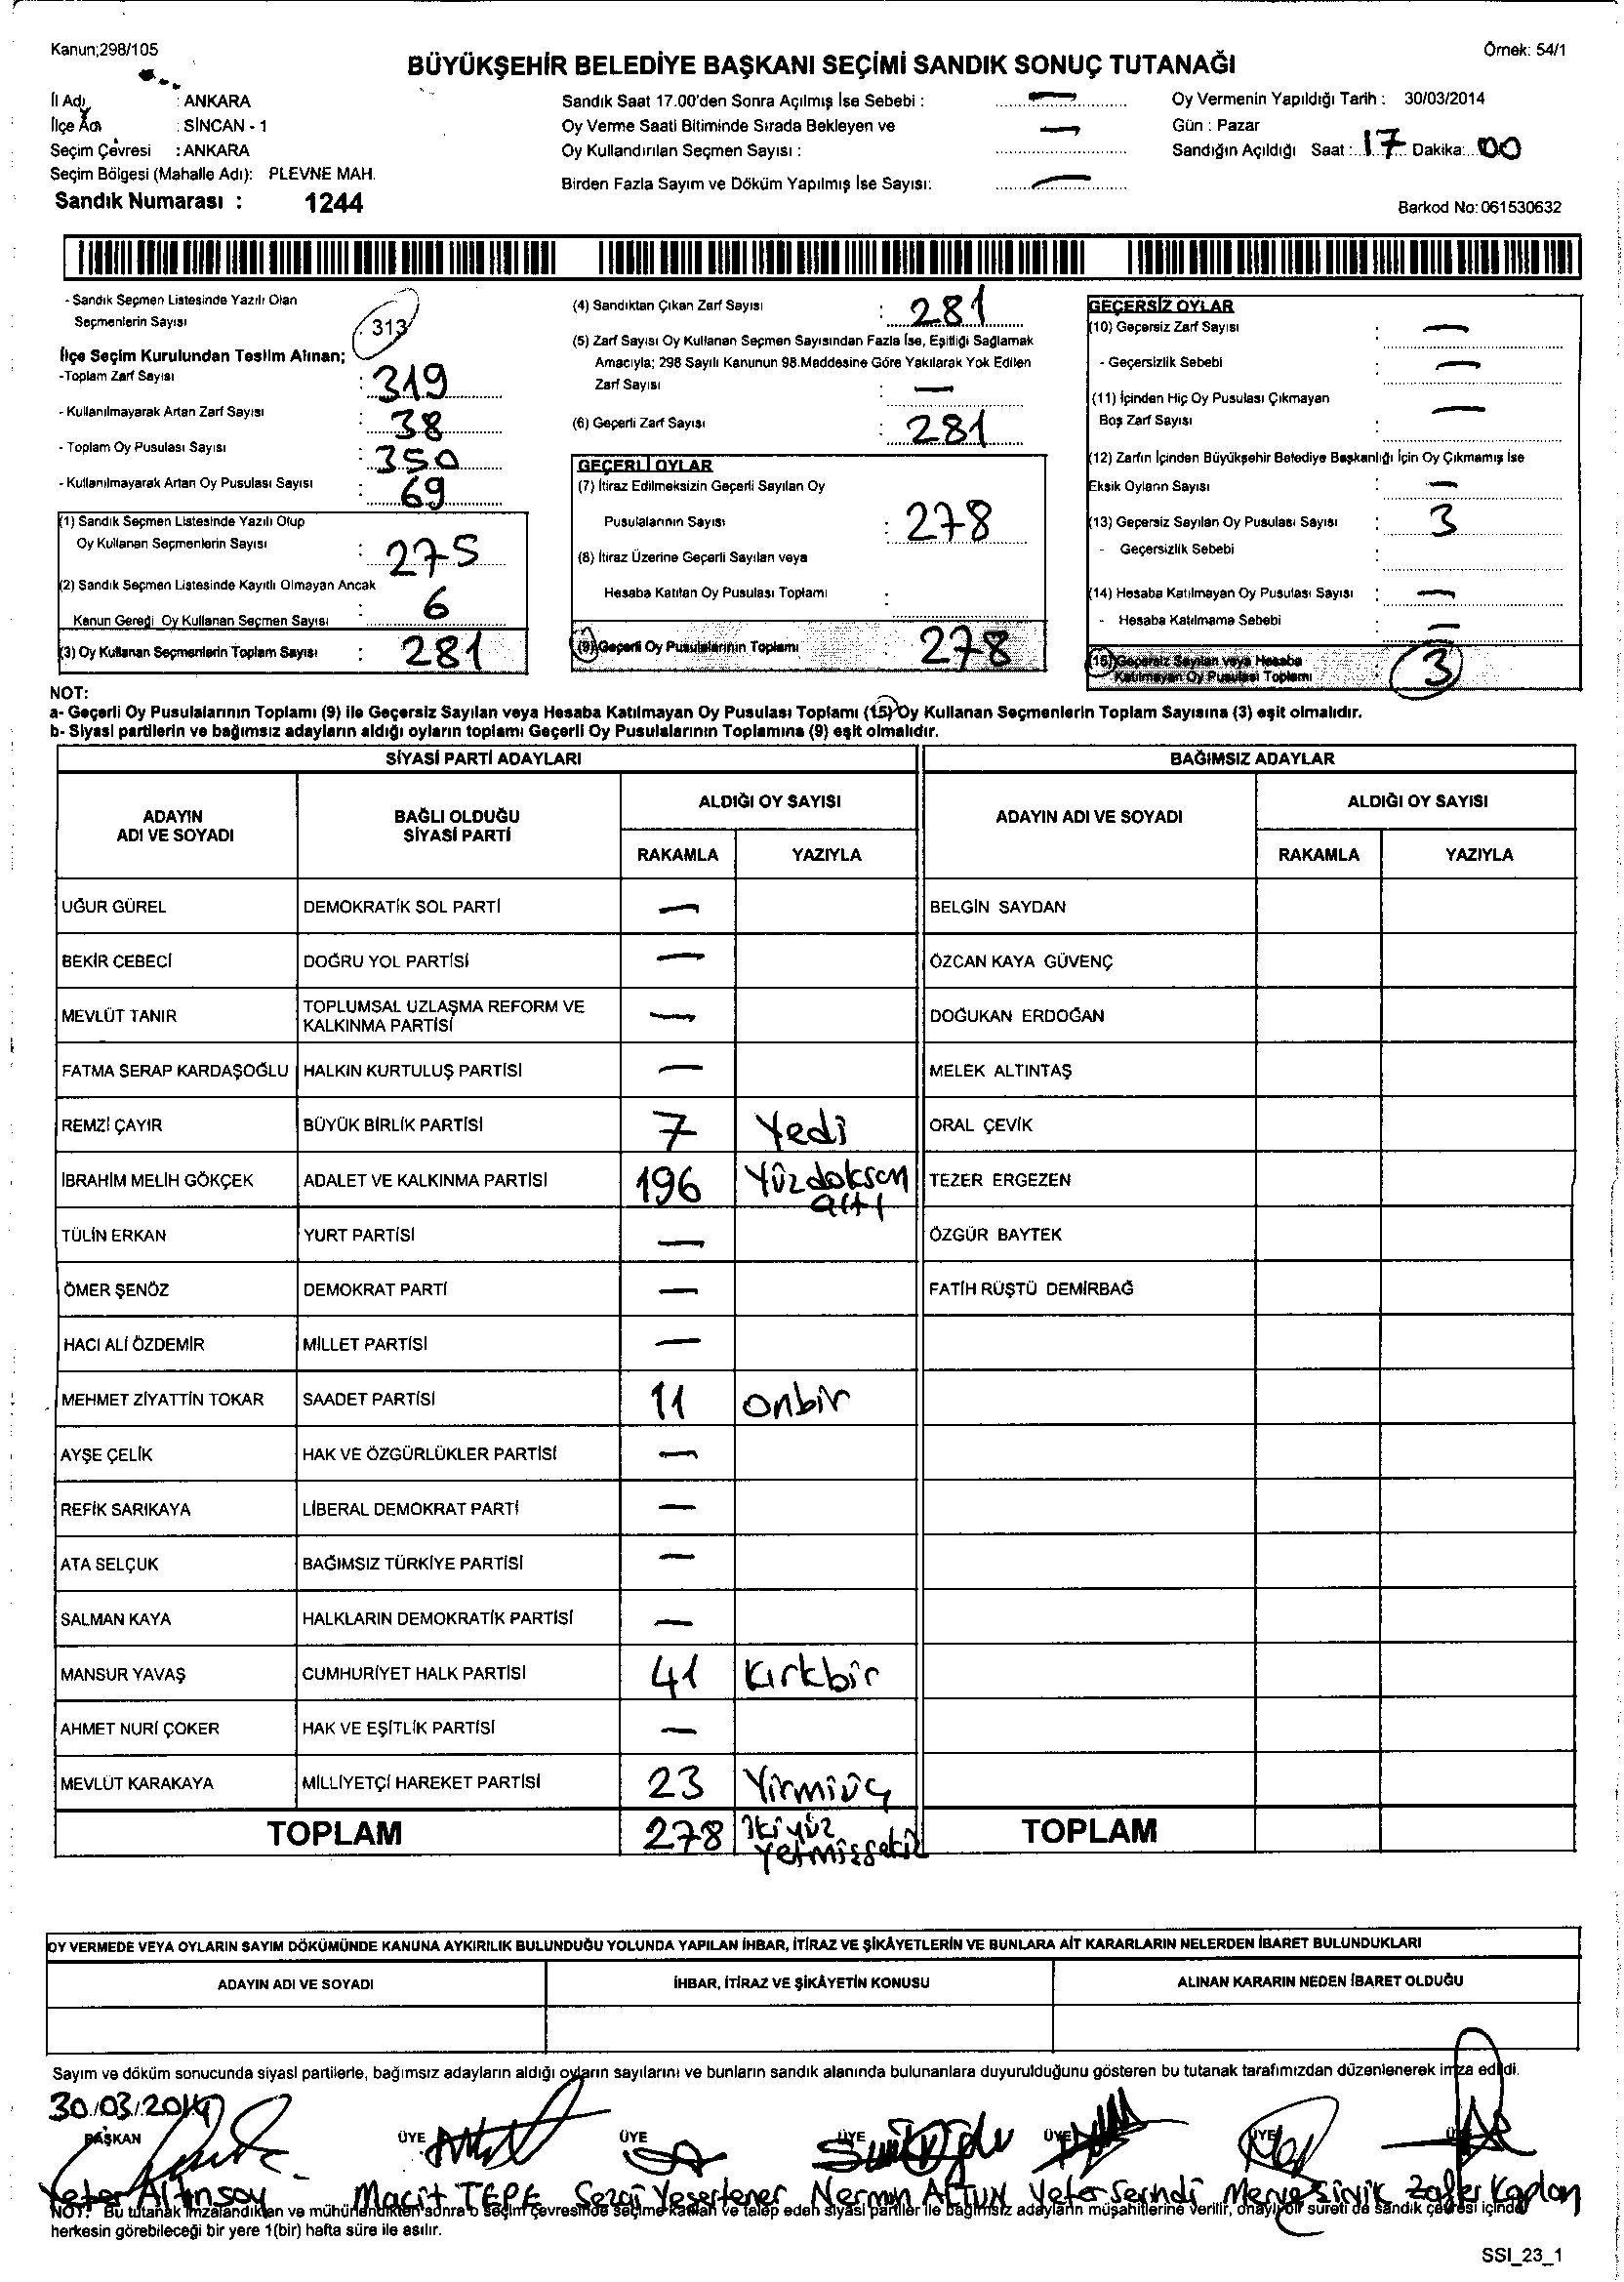 Kanun;298/105
Örnek: 54/1
BÜYÜKŞEHİR BELEDİYE BAŞKANI SEÇİMİ SANDIK SONUÇ TUTANAĞI
İl Adı : ANKARA
İlçe Adı : SİNCAN - 1
Seçim Çevresi : ANKARA
Seçim Bölgesi (Mahalle Adı): PLEVNE MAH.
Sandık Numarası : 1244
Sandık Saat 17.00'den Sonra Açılmış İse Sebebi : —
Oy Verme Saati Bitiminde Sırada Bekleyen ve —
Oy Kullandırılan Seçmen Sayısı :
Birden Fazla Sayım ve Döküm Yapılmış İse Sayısı: —
Oy Vermenin Yapıldığı Tarih : 30/03/2014
Gün : Pazar
Sandığın Açıldığı Saat : 17 Dakika: 00
Barkod No: 061530632
- Sandık Seçmen Listesinde Yazılı Olan
Seçmenlerin Sayısı : 313
İlçe Seçim Kurulundan Teslim Alınan;
-Toplam Zarf Sayısı : 319
- Kullanılmayarak Artan Zarf Sayısı : 38
- Toplam Oy Pusulası Sayısı : 350
- Kullanılmayarak Artan Oy Pusulası Sayısı : 69
(1) Sandık Seçmen Listesinde Yazılı Olup
Oy Kullanan Seçmenlerin Sayısı : 275
(2) Sandık Seçmen Listesinde Kayıtlı Olmayan Ancak
Kanun Gereği Oy Kullanan Seçmen Sayısı : 6
(3) Oy Kullanan Seçmenlerin Toplam Sayısı : 281
(4) Sandıktan Çıkan Zarf Sayısı : 281
(5) Zarf Sayısı Oy Kullanan Seçmen Sayısından Fazla İse, Eşitliği Sağlamak
Amacıyla; 298 Sayılı Kanunun 98.Maddesine Göre Yakılarak Yok Edilen
Zarf Sayısı : —
(6) Geçerli Zarf Sayısı : 281
GEÇERLİ OYLAR
(7) İtiraz Edilmeksizin Geçerli Sayılan Oy
Pusulalarının Sayısı : 278
(8) İtiraz Üzerine Geçerli Sayılan veya
Hesaba Katılan Oy Pusulası Toplamı :
(9) Geçerli Oy Pusulalarının Toplamı : 278
GEÇERSİZ OYLAR
(10) Geçersiz Zarf Sayısı : —
- Geçersizlik Sebebi : —
(11) İçinden Hiç Oy Pusulası Çıkmayan
Boş Zarf Sayısı : —
(12) Zarfın İçinden Büyükşehir Belediye Başkanlığı İçin Oy Çıkmamış İse
Eksik Oyların Sayısı : —
(13) Geçersiz Sayılan Oy Pusulası Sayısı : 3
- Geçersizlik Sebebi :
(14) Hesaba Katılmayan Oy Pusulası Sayısı : —
- Hesaba Katılmama Sebebi : —
(15) Geçersiz Sayılan veya Hesaba
Katılmayan Oy Pusulası Toplamı : 3
NOT:
a- Geçerli Oy Pusulalarının Toplamı (9) ile Geçersiz Sayılan veya Hesaba Katılmayan Oy Pusulası Toplamı (15) Oy Kullanan Seçmenlerin Toplam Sayısına (3) eşit olmalıdır.
b- Siyasi partilerin ve bağımsız adayların aldığı oyların toplamı Geçerli Oy Pusulalarının Toplamına (9) eşit olmalıdır.
SİYASİ PARTİ ADAYLARI BAĞIMSIZ ADAYLAR
ADAYIN ADI VE SOYADI BAĞLI OLDUĞU SİYASİ PARTİ ALDIĞI OY SAYISI ADAYIN ADI VE SOYADI ALDIĞI OY SAYISI
RAKAMLA YAZIYLA RAKAMLA YAZIYLA
UĞUR GÜREL DEMOKRATİK SOL PARTİ — BELGİN SAYDAN
BEKİR CEBECİ DOĞRU YOL PARTİSİ — ÖZCAN KAYA GÜVENÇ
MEVLÜT TANIR TOPLUMSAL UZLAŞMA REFORM VE KALKINMA PARTİSİ — DOĞUKAN ERDOĞAN
FATMA SERAP KARDAŞOĞLU HALKIN KURTULUŞ PARTİSİ — MELEK ALTINTAŞ
REMZİ ÇAYIR BÜYÜK BİRLİK PARTİSİ 7 Yedi ORAL ÇEVİK
İBRAHİM MELİH GÖKÇEK ADALET VE KALKINMA PARTİSİ 196 Yüzdoksan altı TEZER ERGEZEN
TÜLİN ERKAN YURT PARTİSİ — ÖZGÜR BAYTEK
ÖMER ŞENÖZ DEMOKRAT PARTİ — FATİH RÜŞTÜ DEMİRBAĞ
HACI ALİ ÖZDEMİR MİLLET PARTİSİ —
MEHMET ZİYATTİN TOKAR SAADET PARTİSİ 11 onbir
AYŞE ÇELİK HAK VE ÖZGÜRLÜKLER PARTİSİ —
REFİK SARIKAYA LİBERAL DEMOKRAT PARTİ —
ATA SELÇUK BAĞIMSIZ TÜRKİYE PARTİSİ —
SALMAN KAYA HALKLARIN DEMOKRATİK PARTİSİ —
MANSUR YAVAŞ CUMHURİYET HALK PARTİSİ 41 Kırkbir
AHMET NURİ ÇOKER HAK VE EŞİTLİK PARTİSİ —
MEVLÜT KARAKAYA MİLLİYETÇİ HAREKET PARTİSİ 23 Yirmiüç
TOPLAM 278 İkiyüz yetmişsekiz TOPLAM
OY VERMEDE VEYA OYLARIN SAYIM DÖKÜMÜNDE KANUNA AYKIRILIK BULUNDUĞU YOLUNDA YAPILAN İHBAR, İTİRAZ VE ŞİKÂYETLERİN VE BUNLARA AİT KARARLARIN NELERDEN İBARET BULUNDUKLARI
ADAYIN ADI VE SOYADI İHBAR, İTİRAZ VE ŞİKÂYETİN KONUSU ALINAN KARARIN NEDEN İBARET OLDUĞU
Sayım ve döküm sonucunda siyasi partilerle, bağımsız adayların aldığı oyların sayılarını ve bunların sandık alanında bulunanlara duyurulduğunu gösteren bu tutanak tarafımızdan düzenlenerek imza edildi.
30.03.2014
BAŞKAN ÜYE ÜYE ÜYE ÜYE ÜYE ÜYE
Yeter Altınsoy Macit TEPE Sezgi Yeşertener Nermin ALTUN Yeter Serindi Merve Sinik Zafer Kaplan
NOT: Bu tutanak imzalandıktan ve mühürlendikten sonra o seçim çevresinde seçime katılan ve talep eden siyasi partiler ile bağımsız adayların müşahitlerine verilir, onaylı bir sureti de sandık çevresi içinde
herkesin görebileceği bir yere 1(bir) hafta süre ile asılır.
SSI_23_1